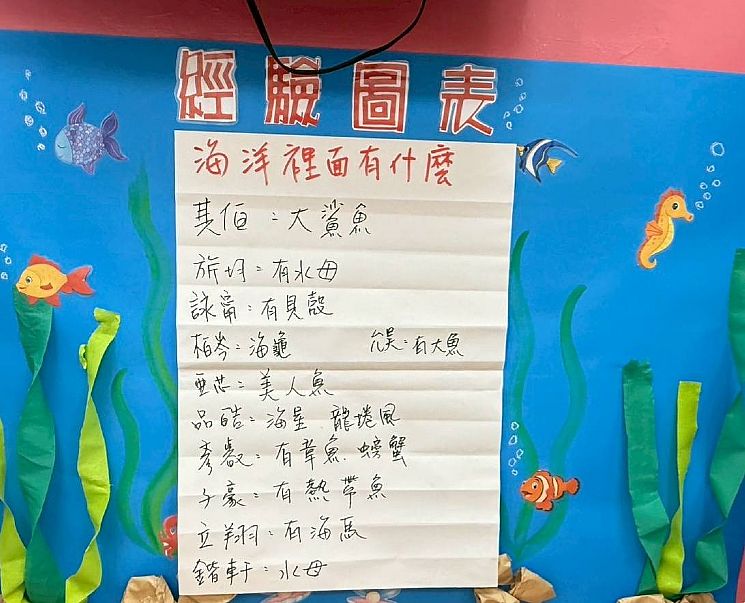 經驗圖表
海洋裡面有什麼
其佰：大鯊魚
旂均：有水母
詠甯：有貝殼
柏岑：海龜 允昊：有大魚
亞芯：美人魚
品皓：海星、龍捲風
彥叡：有章魚、螃蟹
子豪：有熱帶魚
立翔：有海馬
鍇軒：水母